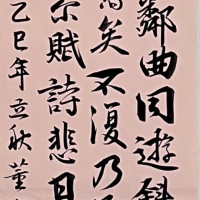 鄰曲同遊斜
矣不復乃
尔賦詩悲日
乙巳年立秋董